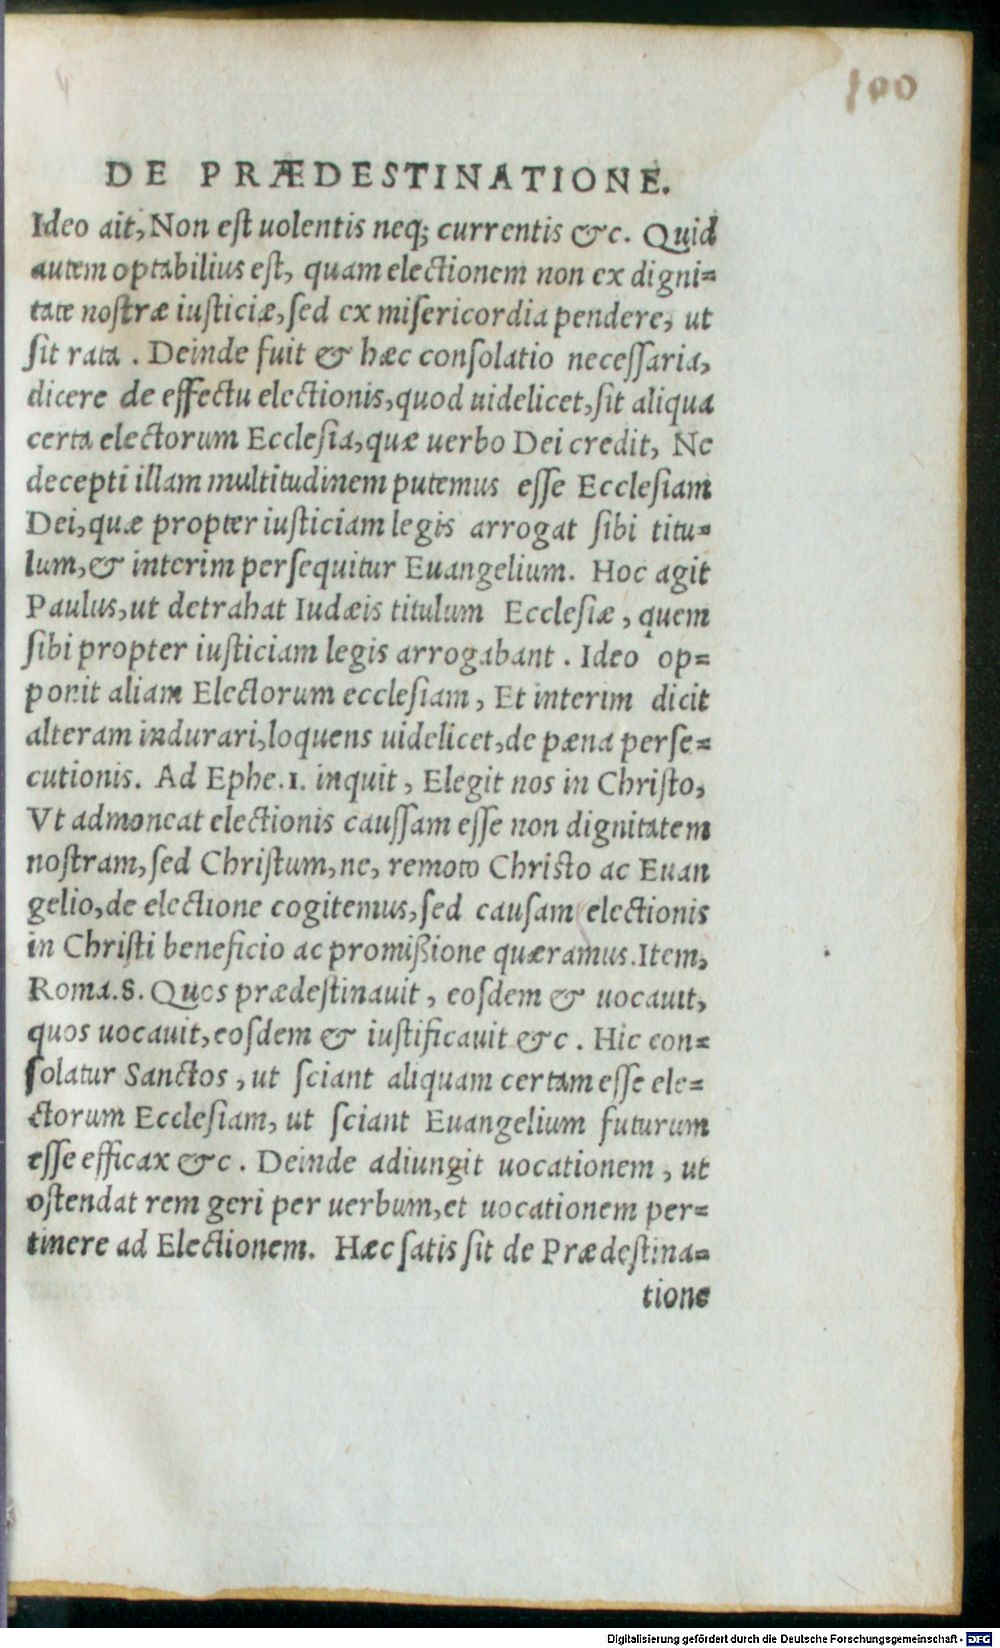 100
DE PRÆDESTINATIONE.
Ideo ait, Non eſt uolentis neq; currentis &c. Quid
autem optabilius eſt, quam electionem non ex digni-
tate noſtræ iuſticiæ, ſed ex miſericordia pendere, ut
ſit rata . Deinde fuit & hæc conſolatio neceſſaria,
dicere de effectu electionis, quod uidelicet, ſit aliqua
certa electorum Eccleſia, quæ uerbo Dei credit, Ne
decepti illam multitudinem putemus eſſe Eccleſiam
Dei, quæ propter iuſticiam legis arrogat ſibi titu-
lum, & interim perſequitur Euangelium. Hoc agit
Paulus, ut detrahat Iudæis titulum Eccleſiæ, quem
ſibi propter iuſticiam legis arrogabant . Ideo op-
ponit aliam Electorum eccleſiam, Et interim dicit
alteram indurari, loquens uidelicet, de pœna perſe-
cutionis. Ad Ephe. 1. inquit, Elegit nos in Chriſto,
Vt admoneat electionis cauſſam eſſe non dignitatem
noſtram, ſed Chriſtum, ne, remoto Chriſto ac Euan
gelio, de electione cogitemus, ſed cauſam electionis
in Chriſti beneficio ac promißione quæramus. Item,
Roma. 8. Quos prædeſtinauit, eoſdem & uocauit,
quos uocauit, eoſdem & iuſtificauit &c . Hic con-
ſolatur Sanctos, ut ſciant aliquam certam eſſe ele-
ctorum Eccleſiam, ut ſciant Euangelium futurum
eſſe efficax &c . Deinde adiungit uocationem, ut
oſtendat rem geri per uerbum, et uocationem per-
tinere ad Electionem. Hæc ſatis ſit de Prædeſtina-
tione
Digitalisierung gefördert durch die Deutsche Forschungsgemeinschaft - DFG